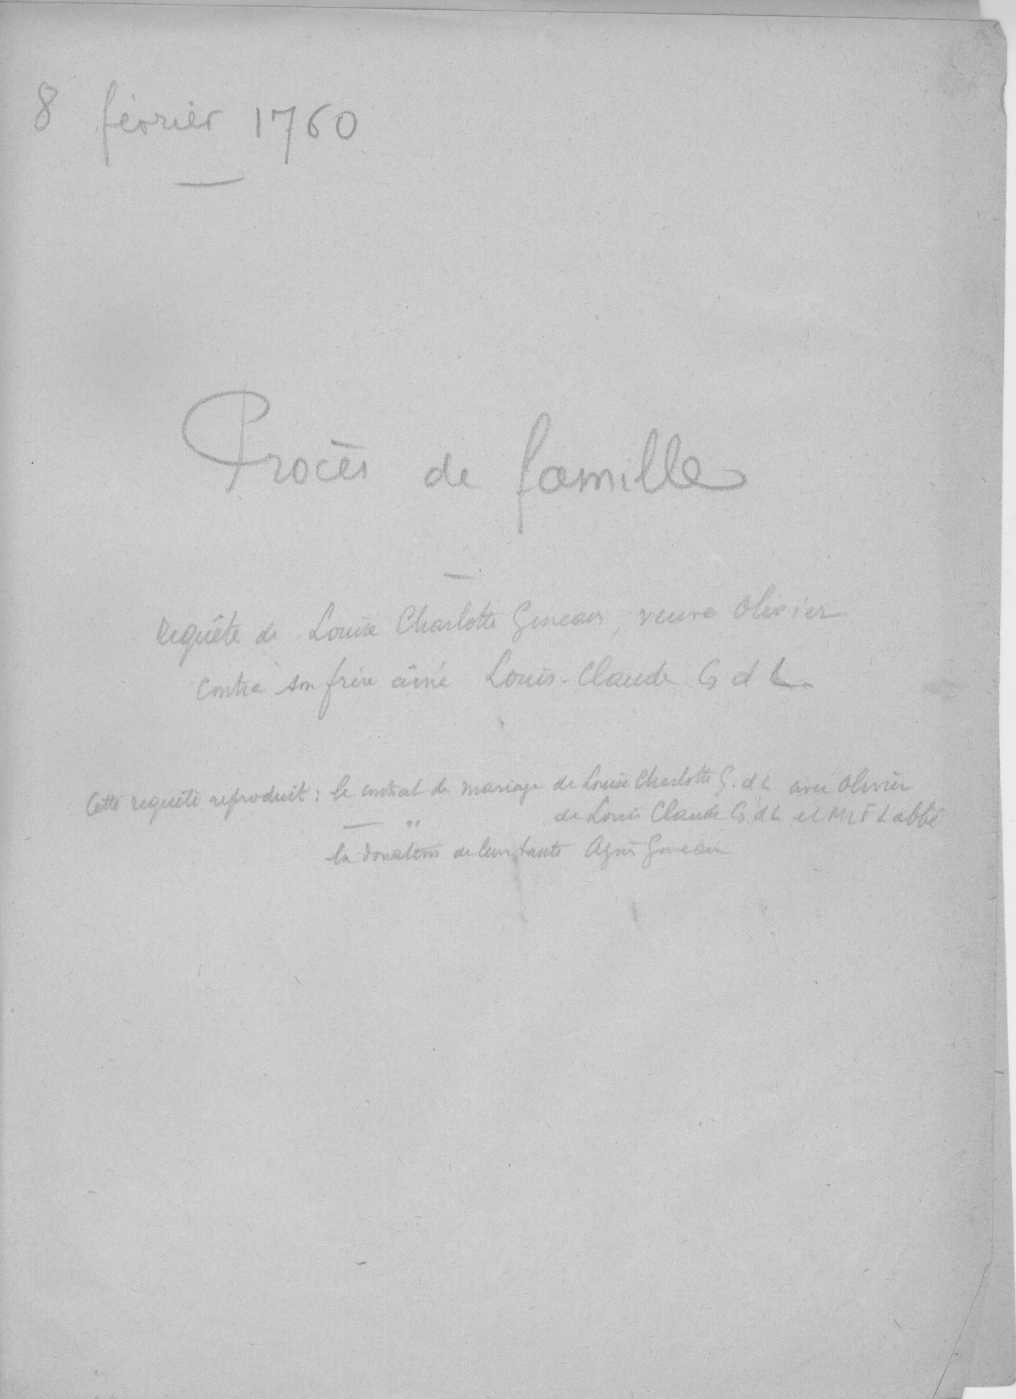 8 février 1760
Procès de famille
Requête de Louise Charlotte Gineau, veuve Olivier
contre son frère aîné Louis-Claude G d L.
Cette requête reproduit : le contrat de mariage de Louise Charlotte G. d L avec Olivier
— " de Louis Claude G d L et MLF Labbé
la donation de leur tante Agnès Gineau